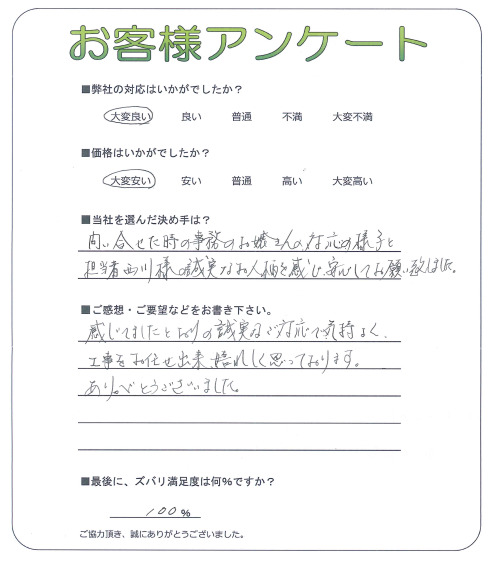 お客様アンケート
■弊社の対応はいかがでしたか？
大変良い 良い 普通 不満 大変不満
■価格はいかがでしたか？
大変安い 安い 普通 高い 大変高い
■当社を選んだ決め手は？
問い合せた時の事務のお嬢さんの対応の様子と
担当者西川様の誠実なお人柄を感じ、安心してお願い致しました。
■ご感想・ご要望などをお書き下さい。
感じてましたとおりの誠実なご対応で気持よく、
工事をお任せ出来、嬉しく思っております。
ありがとうございました。
■最後に、ズバリ満足度は何％ですか？
100 %
ご協力頂き、誠にありがとうございました。